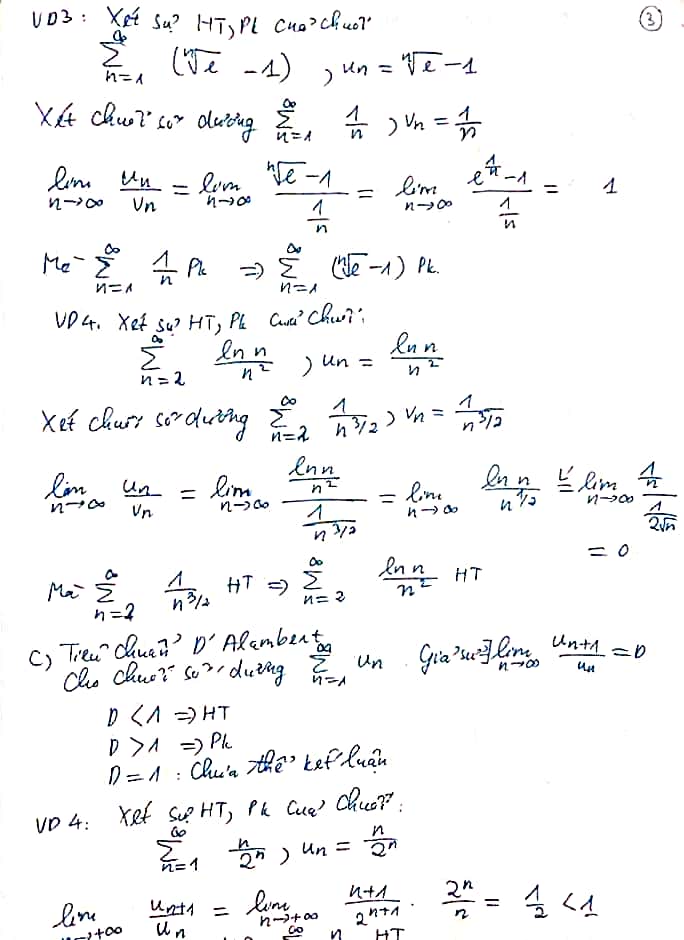 ③
VD3: Xét sự HT, PK của chuỗi
\sum_{n=1}^{\infty} (\sqrt[n]{e} - 1), u_n = \sqrt[n]{e} - 1
Xét chuỗi số dương \sum_{n=1}^{\infty} \frac{1}{n}, v_n = \frac{1}{n}
\lim_{n→∞} \frac{u_n}{v_n} = \lim_{n→∞} \frac{\sqrt[n]{e} - 1}{\frac{1}{n}} = \lim_{n→∞} \frac{e^{\frac{1}{n}} - 1}{\frac{1}{n}} = 1
Mà \sum_{n=1}^{\infty} \frac{1}{n} PK ⇒ \sum_{n=1}^{\infty} (\sqrt[n]{e} - 1) PK.
VD4. Xét sự HT, PK của chuỗi:
\sum_{n=2}^{\infty} \frac{\ln n}{n^2}, u_n = \frac{\ln n}{n^2}
Xét chuỗi số dương \sum_{n=2}^{\infty} \frac{1}{n^{3/2}}, v_n = \frac{1}{n^{3/2}}
\lim_{n→∞} \frac{u_n}{v_n} = \lim_{n→∞} \frac{\frac{\ln n}{n^2}}{\frac{1}{n^{3/2}}} = \lim_{n→∞} \frac{\ln n}{n^{1/2}} \overset{L'}{=} \lim_{n→∞} \frac{\frac{1}{n}}{\frac{1}{2\sqrt{n}}}
= 0
Mà \sum_{n=2}^{\infty} \frac{1}{n^{3/2}} HT ⇒ \sum_{n=2}^{\infty} \frac{\ln n}{n^2} HT
C) Tiêu chuẩn D'Alambert
Cho chuỗi số dương \sum_{n=1}^{\infty} u_n. Giả sử ∃ \lim_{n→∞} \frac{u_{n+1}}{u_n} = D
D < 1 ⇒ HT
D > 1 ⇒ PK
D = 1 : Chưa thể kết luận
VD 4: Xét sự HT, PK của chuỗi:
\sum_{n=1}^{\infty} \frac{n}{2^n}, u_n = \frac{n}{2^n}
\lim_{n→+∞} \frac{u_{n+1}}{u_n} = \lim_{n→+∞} \frac{n+1}{2^{n+1}} . \frac{2^n}{n} = \frac{1}{2} < 1
∞ n HT